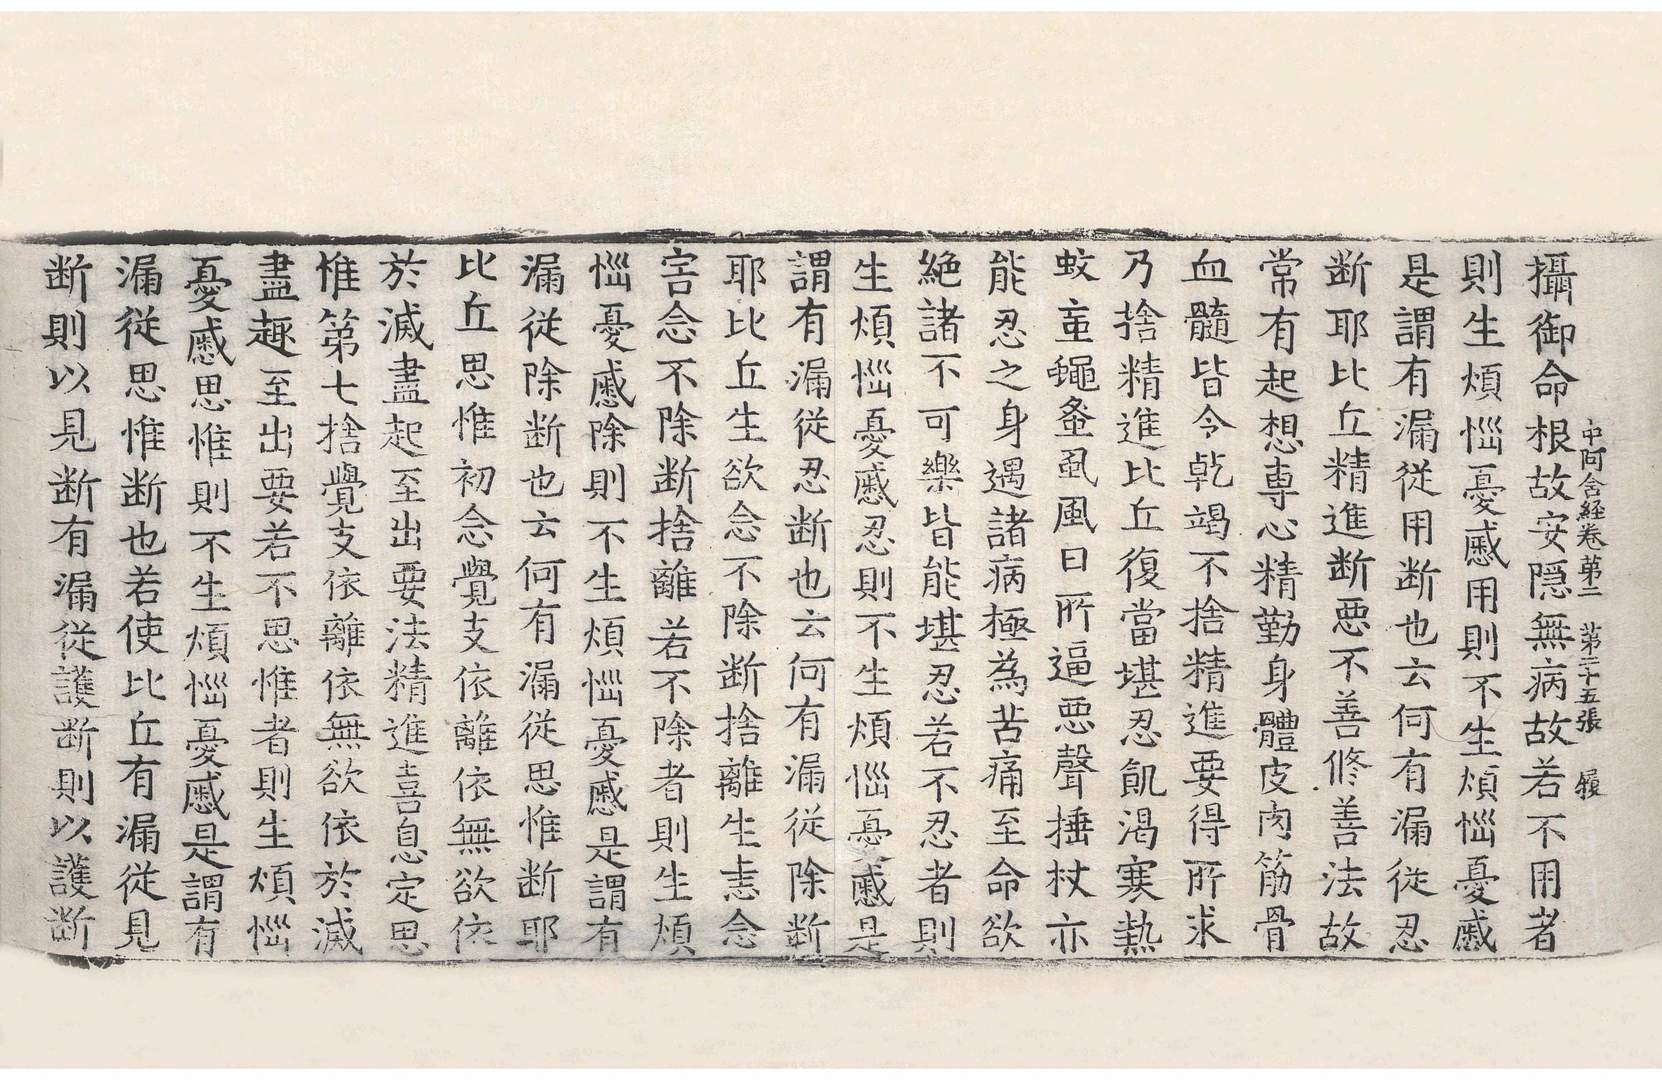 中阿含經卷第二　第二十五張　履
攝御命根故安隱無病故若不用者
則生煩惱憂慼用則不生煩惱憂慼
是謂有漏從用断也云何有漏從忍
断耶比丘精進断惡不善修善法故
常有起想専心精勤身體皮肉筋骨
血髓皆令乾竭不捨精進要得所求
乃捨精進比丘復當堪忍飢渴寒熱
蚊䖟蠅蚤虱風日所逼惡聲捶杖亦
能忍之身遇諸病極為苦痛至命欲
絶諸不可樂皆能堪忍若不忍者則
生煩惱憂慼忍則不生煩惱憂慼是
謂有漏從忍断也云何有漏從除断
耶比丘生欲念不除断捨離生恚念
害念不除断捨離若不除者則生煩
惱憂慼除則不生煩惱憂慼是謂有
漏從除断也云何有漏從思惟断耶
比丘思惟初念覺支依離依無欲依
於滅盡起至出要法精進喜息定思
惟第七捨覺支依離依無欲依於滅
盡趣至出要若不思惟者則生煩惱
憂慼思惟則不生煩惱憂慼是謂有
漏從思惟断也若使比丘有漏從見
断則以見断有漏從護断則以護断